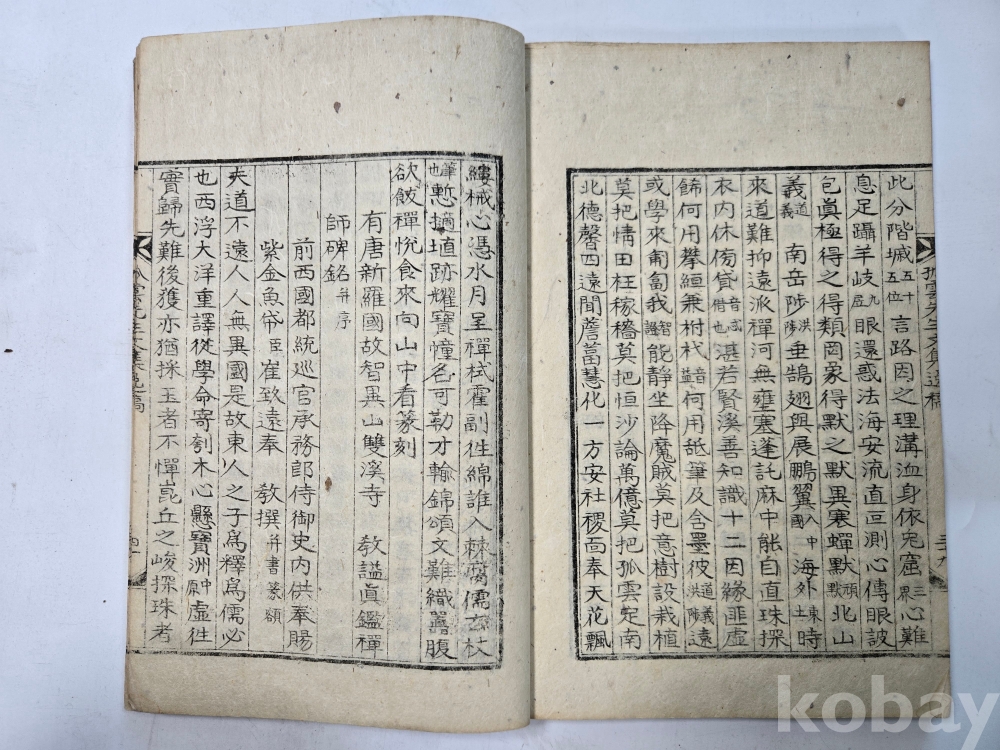 此分階墄五十五位言路因之理溝洫身依兔窟三界心難
息足躡羊岐九居眼還惑法海安流直叵測心傳眼詖
包眞極得之得類罔象得默之默異寒蟬默兩默北山
義道義南岳陟洪陟垂鵠翅與展鵬翼國入中海外東土時
來道難抑遠派禪河無壅塞蓬託麻中能自直珠探
衣內休傍貸音忒借也湛若賢溪善知識十二因緣匪虛
餙何用攀緪兼拊杙音益何用舐筆及含墨彼道義洪陟遠
或學來匍匐我諶智能靜坐降魔賊莫把意樹設栽植
莫把情田枉稼穡莫把恒沙論萬億莫把孤雲定南
北德馨四遠聞薝蔔慧化一方安社稷面奉天花飄
孤雲先生文集逸稿
縷械心憑水月呈禪栻霍副徃綿誰入棘腐儒玄杖
筆也慙擿埴跡耀寶幢名可勒才輸錦頌文難織嚚腹
欲飯禪悅食來向山中看篆刻
有唐新羅國故智異山雙溪寺 敎謚眞鑑禪
師碑銘幷序
前西國都統巡官承務郎侍御史內供奉賜
紫金魚帒臣崔致遠奉 敎撰幷書篆額
夫道不遠人人無異國是故東人之子爲釋爲儒必
也西浮大洋重譯從學命寄刳木心懸寶洲虛徃
實歸先難後獲亦猶採玉者不憚崑丘之峻探珠者
孤雲先生文集逸稿
kobay